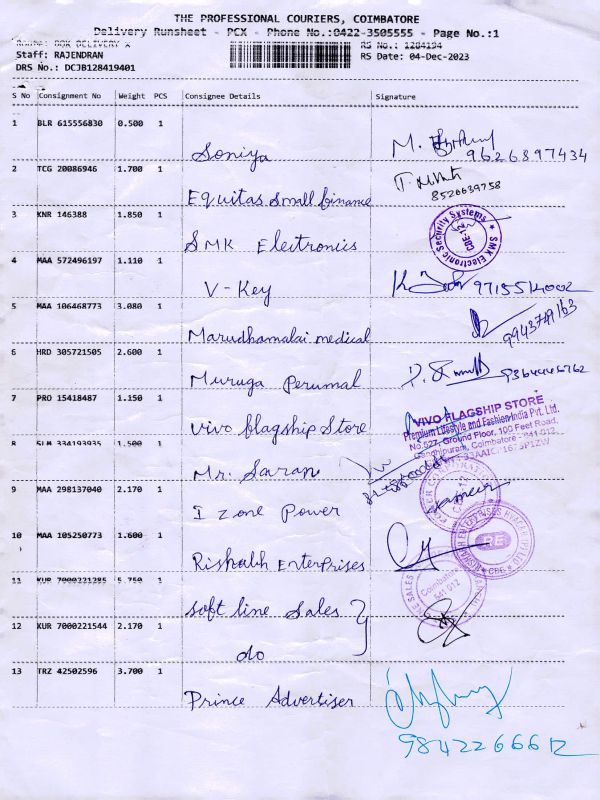 THE PROFESSIONAL COURIERS, COIMBATORE
Delivery Runsheet - PCX - Phone No.:0422-3505555 - Page No.:1
RS No.: 1284194
Staff: RAJENDRAN RS Date: 04-Dec-2023
DRS No.: DCJB128419401
S No Consignment No Weight PCS Consignee Details Signature
1 BLR 615556830 0.500 1
Soniya
9626897434
2 TCG 20086946 1.700 1
8526639758
Equitas Small finance
3 KNR 146388 1.850 1
SMK Electronics
SMK Electronic Security Systems
CBE
4 MAA 572496197 1.110 1
V-Key
5 MAA 106468773 3.080 1
Marudhamalai medical
6 HRD 305721505 2.600 1
Muruga Perumal
7 PRO 15418487 1.150 1
vivo flagship Store
VIVO FLAGSHIP STORE
Premium Lifestyle and Fashion India Pvt. Ltd.
No.527, Ground Floor, 100 Feet Road,
Gandhipuram, Coimbatore - 641 012.
8 SLM 334193935 1.500 1
Mr. Saran
9 MAA 298137040 2.170 1
I zone Power
10 MAA 105250773 1.600 1
Rishabh Enterprises
RE
CBE
11 KUR 7000221285 5.750 1
Soft line Sales
Coimbatore
641 012
12 KUR 7000221544 2.170 1
do
13 TRZ 42502596 3.700 1
Prince Advertiser
9842266612